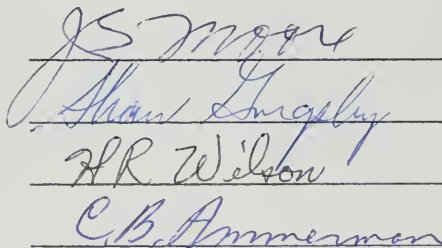 J.S. Moore
Shawn
H.R. Wilson
C.B. Ammerman